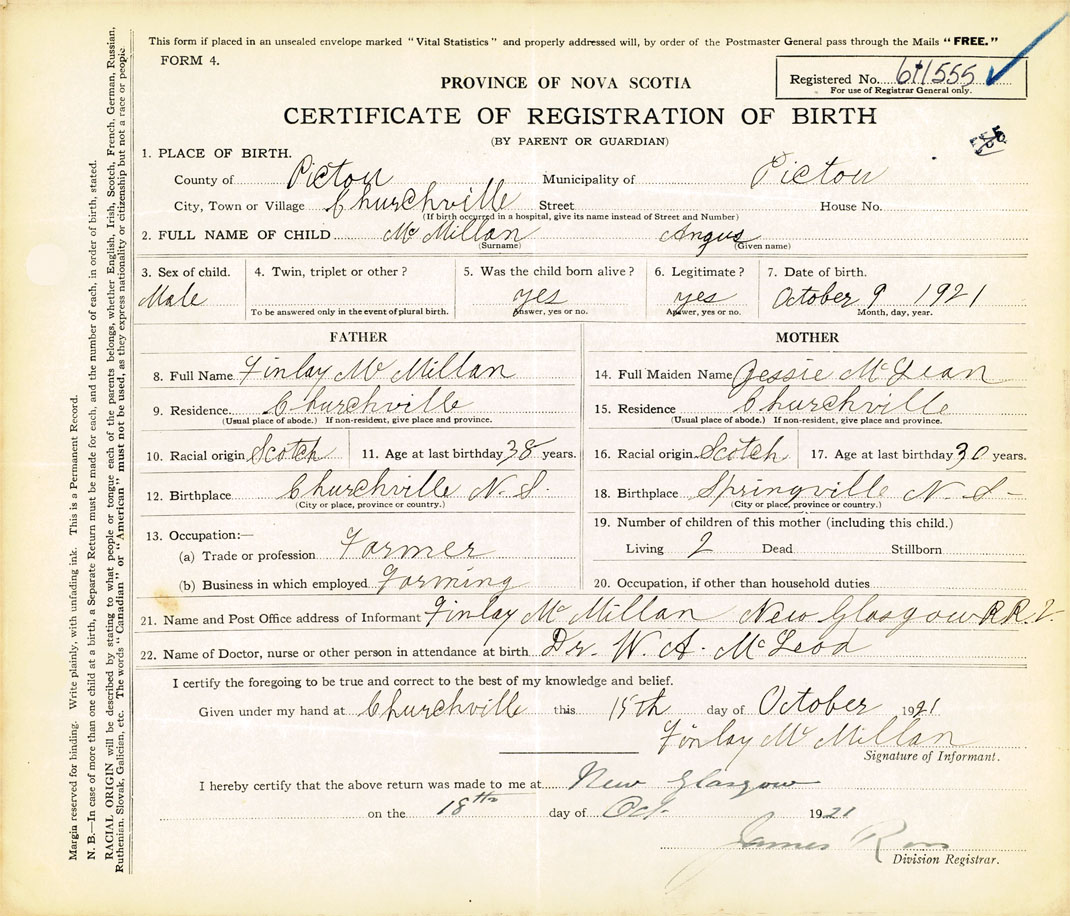 This form if placed in an unsealed envelope marked "Vital Statistics" and properly addressed will, by order of the Postmaster General pass through the Mails "FREE."
FORM 4.
Registered No. 611555
For use of Registrar General only.
PROVINCE OF NOVA SCOTIA
CERTIFICATE OF REGISTRATION OF BIRTH
(BY PARENT OR GUARDIAN)
1. PLACE OF BIRTH.
County of Pictou Municipality of Pictou
City, Town or Village Churchville Street House No.
(If birth occurred in a hospital, give its name instead of Street and Number)
2. FULL NAME OF CHILD McMillan Angus
(Surname) (Given name)
3. Sex of child. 4. Twin, triplet or other? 5. Was the child born alive? 6. Legitimate? 7. Date of birth.
Male yes yes October 9 1921
To be answered only in the event of plural birth. Answer, yes or no. Answer, yes or no. Month, day, year.
FATHER
8. Full Name Finlay McMillan
9. Residence Churchville
(Usual place of abode.) If non-resident, give place and province.
10. Racial origin Scotch 11. Age at last birthday 38 years.
12. Birthplace Churchville N. S.
(City or place, province or country.)
13. Occupation:—
(a) Trade or profession Farmer
(b) Business in which employed Farming
MOTHER
14. Full Maiden Name Jessie McLean
15. Residence Churchville
(Usual place of abode.) If non-resident, give place and province.
16. Racial origin Scotch 17. Age at last birthday 30 years.
18. Birthplace Springville N. S.
(City or place, province or country.)
19. Number of children of this mother (including this child.)
Living 2 Dead Stillborn
20. Occupation, if other than household duties
21. Name and Post Office address of Informant Finlay McMillan New Glasgow R.R. 2.
22. Name of Doctor, nurse or other person in attendance at birth Dr. W. A. McLeod
I certify the foregoing to be true and correct to the best of my knowledge and belief.
Given under my hand at Churchville this 15th day of October 1921
Finlay McMillan
Signature of Informant.
I hereby certify that the above return was made to me at New Glasgow
on the 18th day of Oct. 1921
James Ross
Division Registrar.
Margin reserved for binding. Write plainly, with unfading ink. This is a Permanent Record.
N. B.—In case of more than one child at a birth, a Separate Return must be made for each, and the number of each, in order of birth, stated.
RACIAL ORIGIN will be described by stating to what people or tongue each of the parents belongs, whether English, Irish, Scotch, French, German, Russian,
Ruthenian, Slovak, Galician, etc. The words "Canadian" or "American" must not be used, as they express nationality or citizenship but not a race or people.